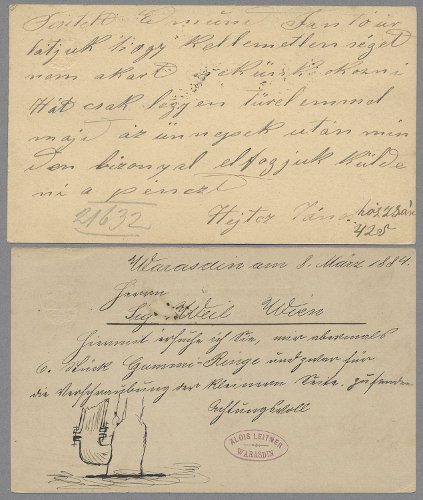 Tisztelt Edmund Fantó úr
látjuk hogy kellemetlenséget
nem akart nekünk okozni
Hát csak legyen türelemmel
majd az ünnepek után min
den bizonyal elfogjuk külde
ni a pénzt
21632
428
Warasdin am 8. März 1884.
Herrn
Sig. Weil Wien
Hiermit ersuche ich Sie, mir abermals
6. Stück Gummi-Ringe und zwar für
die Verschraubung der kleinern Seite zusenden
Achtungsvoll
ALOIS LEITNER
WARASDIN